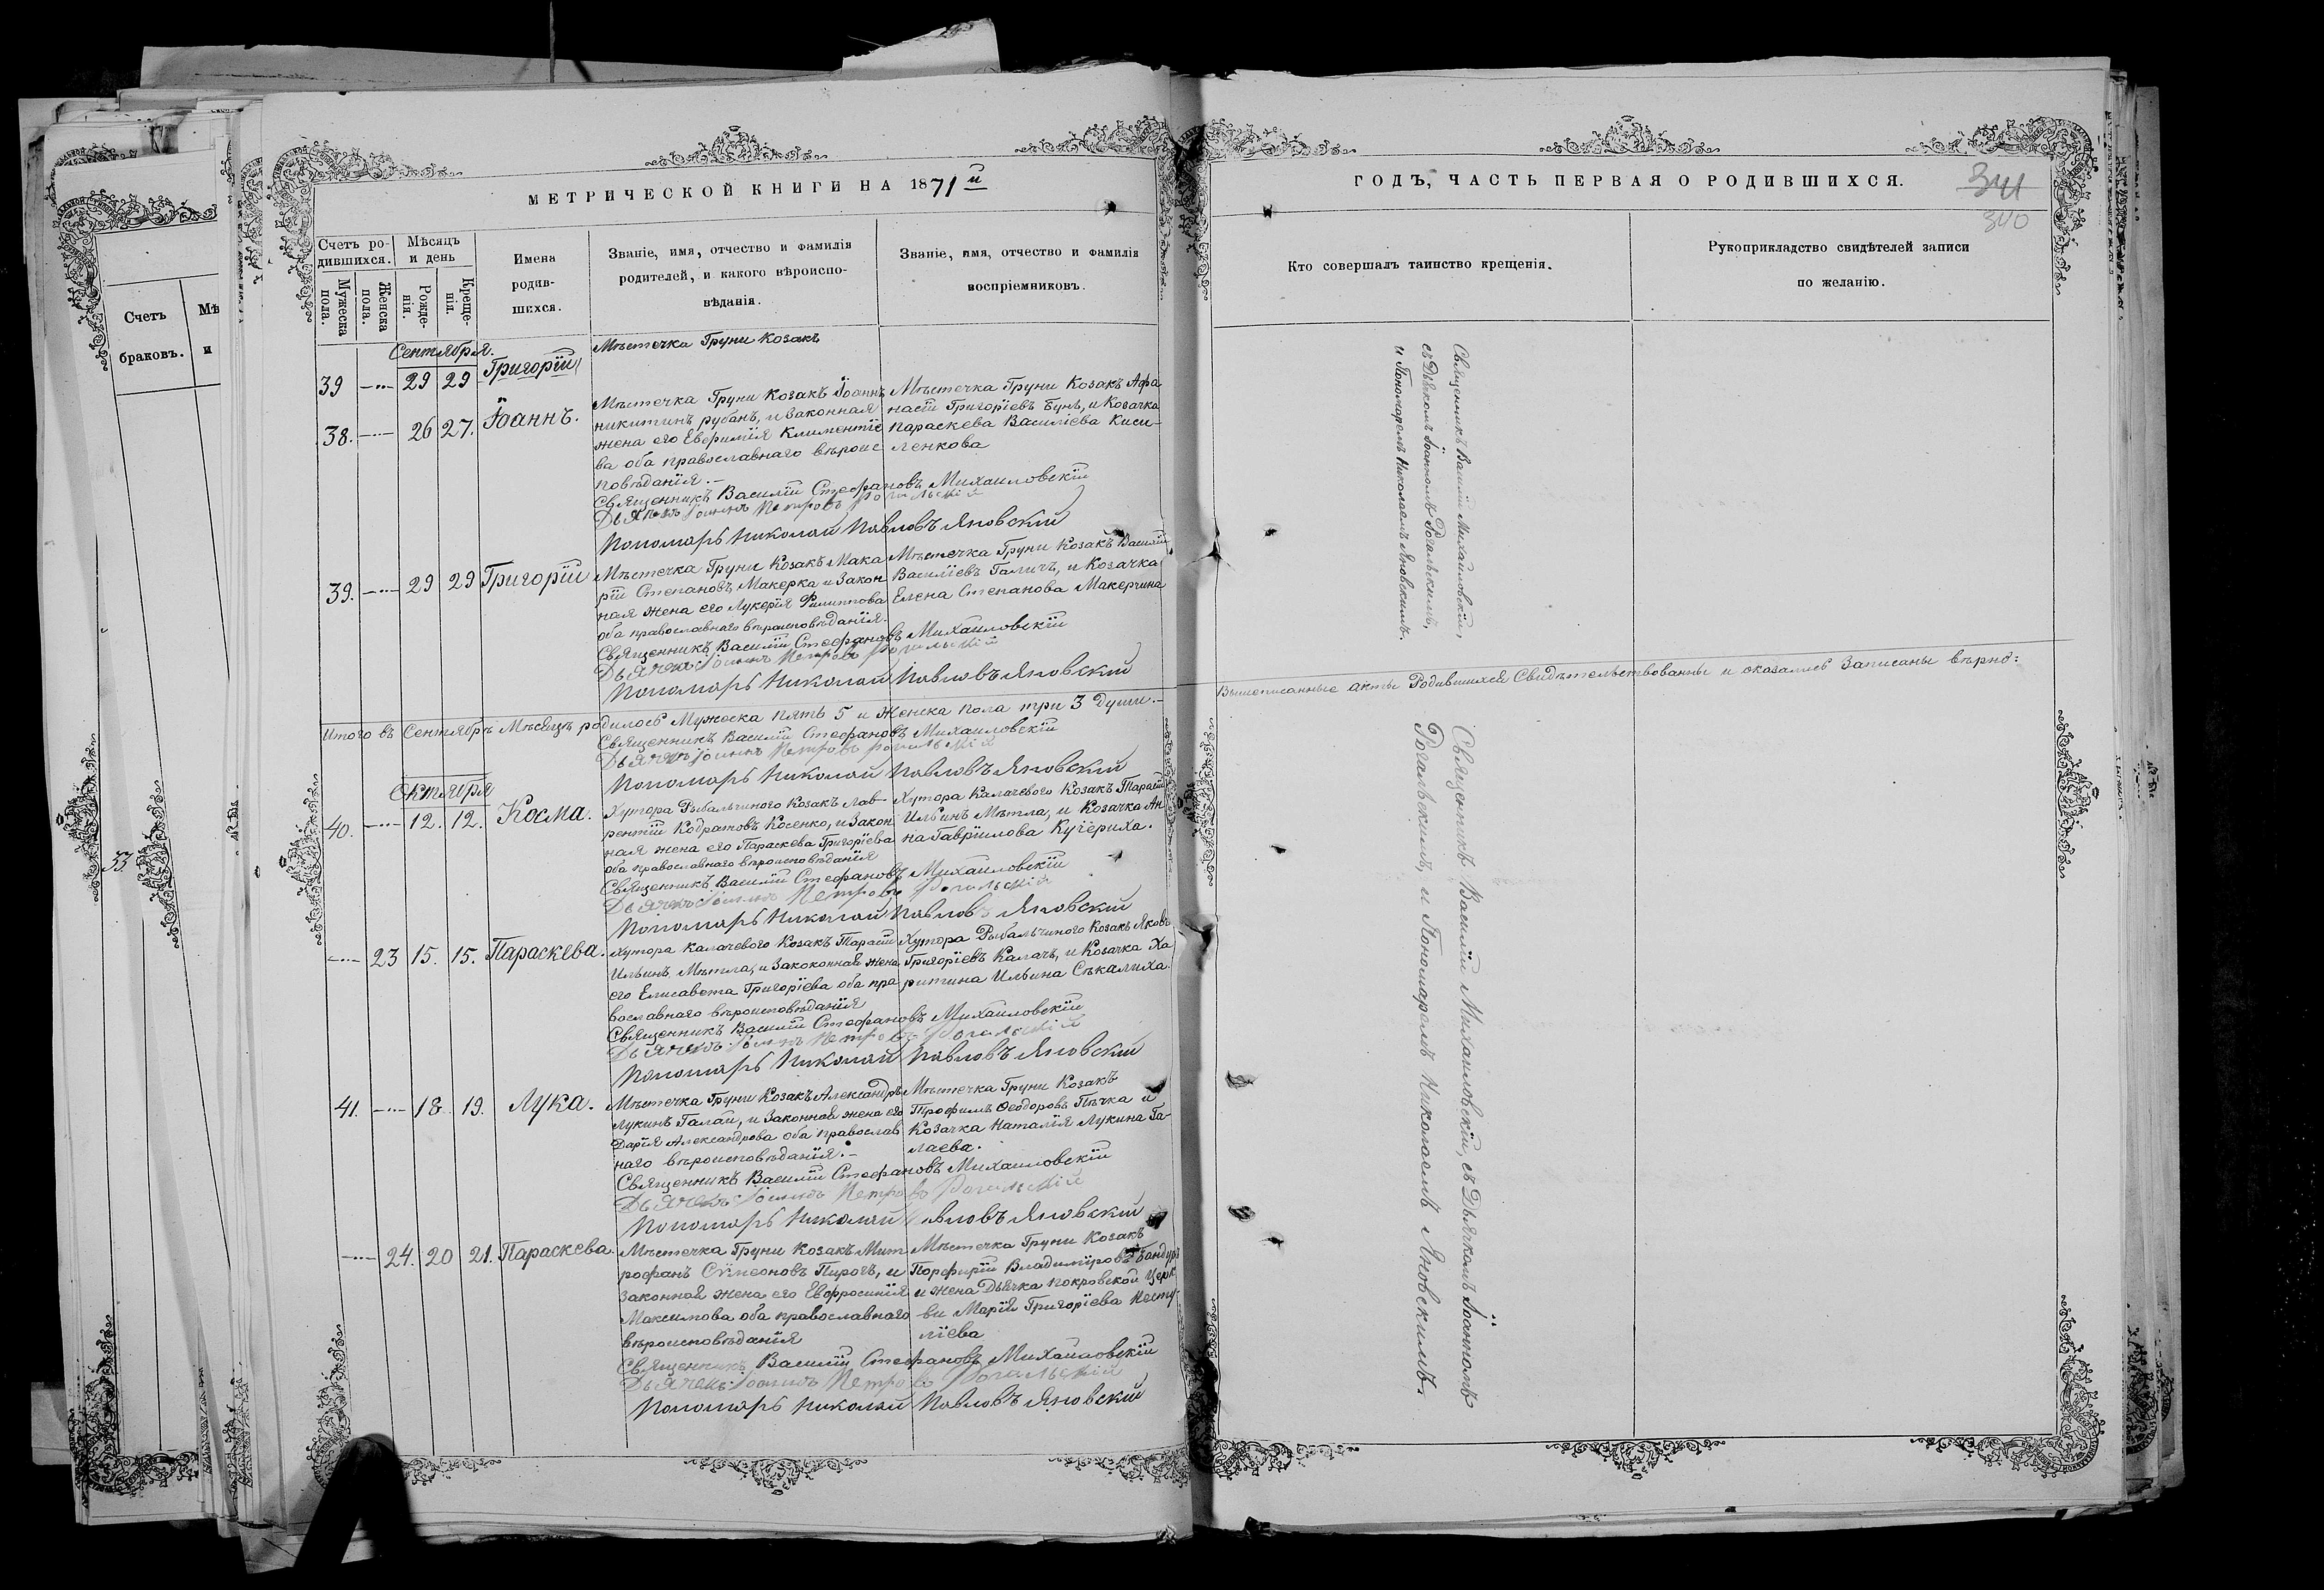 МЕТРИЧЕСКОЙ КНИГИ НА 1871й
Счетъ ро-
дившихся.
Мѣсяцъ
и день
Мужеска
пола.
Женска
пола.
Рожде-
нія.
Креще-
нія.
Имена
родив-
шихся.
Званіе, имя, отчество и фамилія
родителей, и какого вѣроиспо-
вѣданія.
Званіе, имя, отчество и фамилія
воспріемниковъ.
Сентября.
Мѣстечка Груни Козакъ
39 29 29 Григорій
38. 26 27. Іоаннъ.
Мѣстечка Груни Козакъ Іоаннъ
никитинъ рубанъ, и законная
жена его Евфимія Климентіе
ва оба православнаго вѣроис
повѣданія.-
Мѣстечка Груни Козакъ Афа
насій Григоріевъ Бунь, и Козачка
параскева Василіева Киси-
ленкова
Священникъ Василій Стефановъ Михаиловскій
Дьячекъ Іоаннъ Петровъ Рогальскій
Пономарь Николай Павловъ Яновскій
39. 29 29 Григорій
Мѣстечка Груни Козакъ Мака
рій Степановъ Макерка и Закон
ная жена его Лукерія Филиппова
оба православнаго вѣроисповѣданія.
Мѣстечка Груни Козакъ Василій
Василіевъ Галичъ, и Козачка
Елена Степанова Макерчина
Священникъ Василій Стефановъ Михаиловскій
Дьячекъ Іоаннъ Петровъ Рогальскій
Пономарь Николай Павловъ Яновскій
Итого въ Сентябрѣ Мѣсяцѣ родилось Мужеска пять 5 и Женска пола три 3 души.-
Священникъ Василій Стефановъ Михаиловскій
Дьячекъ Іоаннъ Петровъ Рогальскій
Пономарь Николай Павловъ Яновскій
Октября
40. 12. 12. Косма.
Хутора Рыбальчиного Козакъ Лав-
рентій Кодратовъ Косенко, и Закон
ная жена его Параскева Григоріева
оба православнаго вѣроисповѣданія
Хутора Калачевого Козакъ Тарасій
Ильинъ Мѣтла, и Козачка Ан
на Гавріилова Кучериха.
Священникъ Василій Стефановъ Михаиловскій
Дьячекъ Іоаннъ Петровъ Рогальскій
Пономарь Николай Павловъ Яновскій
23 15. 15. Параскева.
Хутора Калачевого Козакъ Тарасій
Ильинъ Мѣтла, и Закоконная жена
его Елисавета Григоріева оба пра
вославнаго вѣроисповѣданія
Хутора Рыбальчиного Козакъ Яковъ
Григоріевъ Калачъ, и Козачка Ха
ритина Ильина Сѣкалиха.
Священникъ Василій Стефановъ Михаиловскій
Дьячекъ Іоаннъ Петровъ Рогальскій
Пономарь Николай Павловъ Яновскій
41. 18. 19. Лука.
Мѣстечка Груни Козакъ Александръ
Лукинъ Галай, и Законная жена его
Дарія Александрова оба православ
наго вѣроисповѣданія.-
Мѣстечка Груни Козакъ
Трофимъ Ѳеодоровъ Пѣчка и
Козачка Наталія Лукина Га-
лаева.
Священникъ Василій Стефановъ Михаиловскій
Дьячекъ Іоаннъ Петровъ Рогальскій
Пономарь Николай Павловъ Яновскій
24. 20 21. Параскева.
Мѣстечка Груни Козакъ Мит
рофанъ Сімеоновъ Пирогъ, и
Законная жена его Евфросинія
Максимова оба православнаго
вѣроисповѣданія
Мѣстечка Груни Козакъ
Порфирій Владиміровъ Бандуръ
и жена Дьячка покровской Церк
ви Марія Григоріева
ліева
Священникъ Василій Стефановъ Михаиловскій
Дьячекъ Іоаннъ Петровъ Рогальскій
Пономарь Николай Павловъ Яновскій
ГОДЪ, ЧАСТЬ ПЕРВАЯ О РОДИВШИХСЯ.
341
340
Кто совершалъ таинство крещенія.
Рукоприкладство свидѣтелей записи
по желанію.
Священникъ Василій Михаиловскій,
съ Дьячкомъ Іоанномъ Рогальскимъ,
и Пономаремъ Николаемъ Яновскимъ.
Вышеписанные акты Родившихся Свидѣтельствованны и оказались Записаны вѣрно:
Священникъ Василій Михаиловскій, съ Дьячкомъ Іоанномъ
Рогальскимъ, и Пономаремъ Николаемъ Яновскимъ.
Счетъ
браковъ.
Мѣ
и
33.